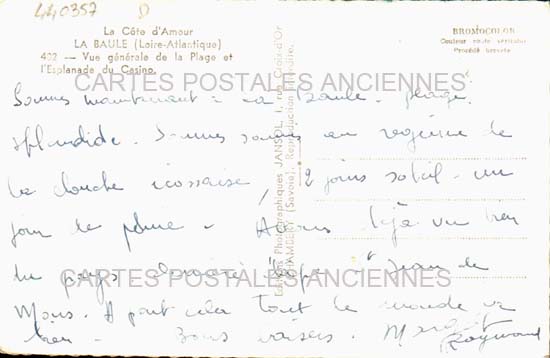 440357
La Côte d'Amour
LA BAULE (Loire-Atlantique)
402 — Vue générale de la Plage et
l'Esplanade du Casino.
BROMOCOLOR
Couleur toute véritable
Procédé breveté
CARTES POSTALES ANCIENNES
Sommes maintenant à La Baule. plage
splendide. Sommes soumis au régime de
la douche écossaise, 2 jours soleil - un
jour de pluie - Avons déjà vu bien
du pays. Dernière étape St Jean de
Monts. A part cela tout le monde va
bien - Bons baisers.
Raymond
Editions Photographiques JANSOL, 1, rue Croix-d'Or
CHAMBÉRY (Savoie). Reproduction interdite.
CARTES POSTALES ANCIENNES